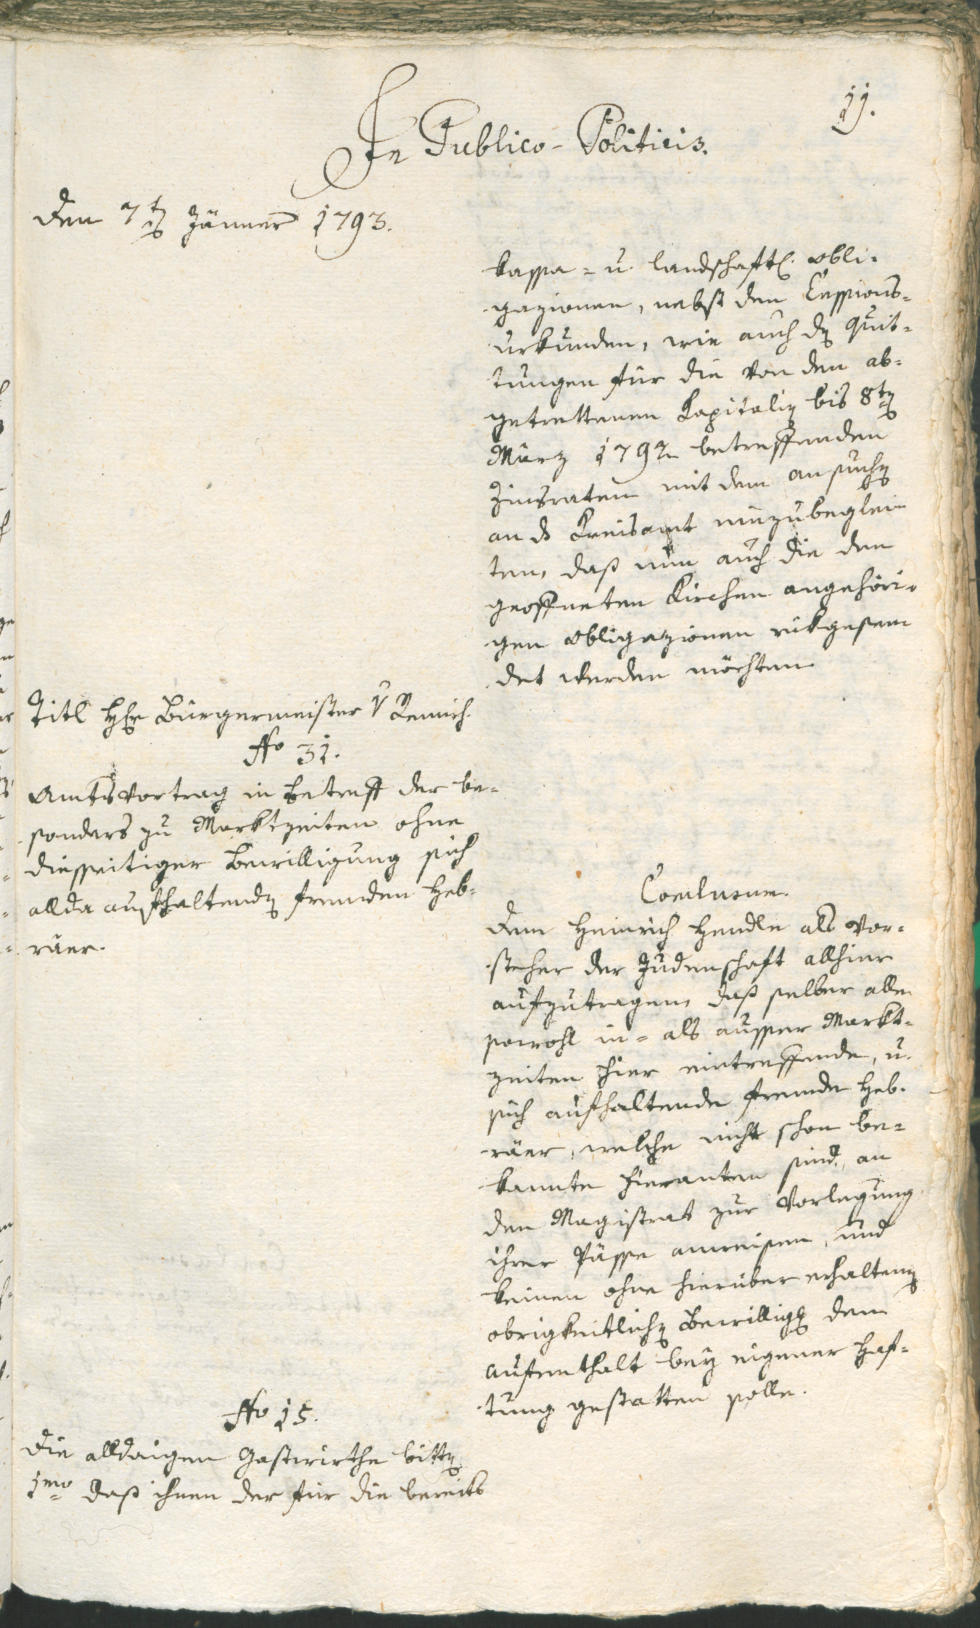 11.
In Publico-Politicis.
Den 7ten Jänner 1793.
kassa- u. landschaftl. obli-
gazionen, nebst den Cessions-
urkunden, wie auch den Quit-
tungen für die von den ab-
getrettenen Kapitalien bis 8ten
März 1792 betreffenden
Zinsraten mit dem ansuchen
an das Kreisamt einzubeglei-
ten, daß nun auch die den
geöffneten Kirchen angehöri-
gen obligazionen rükgesen-
det werden möchten.
Titl Herr Bürgermeister v Remich.
No 31.
Amtsvortrag in betreff der be-
sonders zu Marktzeiten ohne
diesseitiger Bewilligung sich
allda aufhaltenden fremden Heb-
räer.
Conclusum.
Dem Heinrich Hendle als Vor-
steher der Judenschaft allhier
aufzutragen, daß selber alle
sowohl in- als ausser Markt-
zeiten hier eintreffende, u.
sich aufhaltende fremde Heb-
räer, welche nicht schon be-
kannte hieranten sind, an
den Magistrat zur Vorlegung
ihrer Pässe anweisen, und
keinen ohne hierüber erhaltenen
obrigkeitlichen Bewilligung den
Aufenthalt bey eigener Haf-
tung gestatten solle.
No 15.
Die alldaigen Gastwirthe bitten
1mo daß ihnen der für die bereits